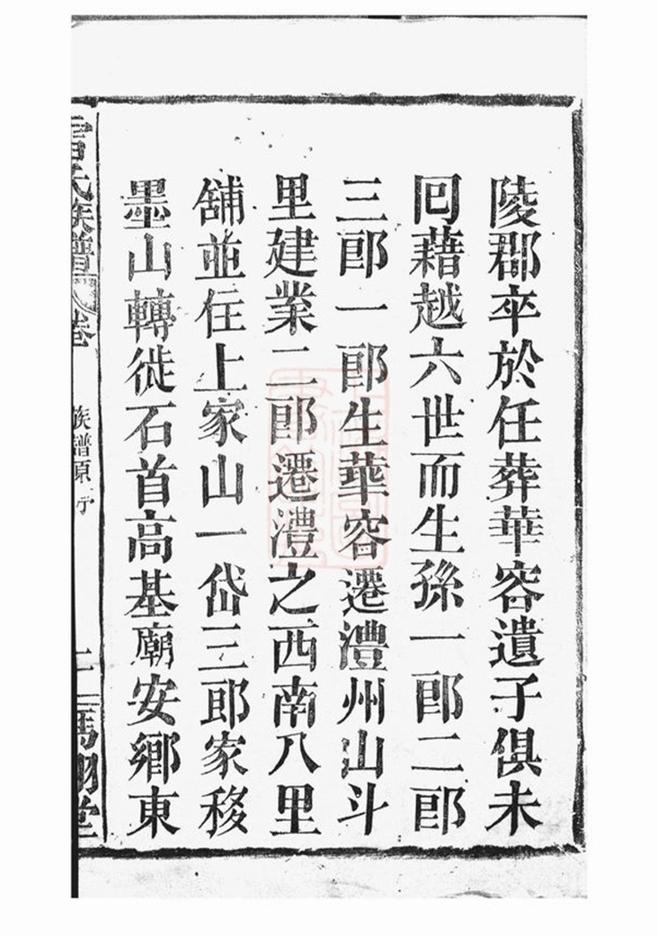 陵郡卒於任葬華容遺子俱未
囘藉越六世而生孫一郎二郎
三郎一郎生華容遷澧州山斗
里建業二郎遷澧之西南八里
舖並住上家山一岱三郎家移
墨山轉徙石首高基廟安鄉東
氏族譜 卷
族譜原序
堂